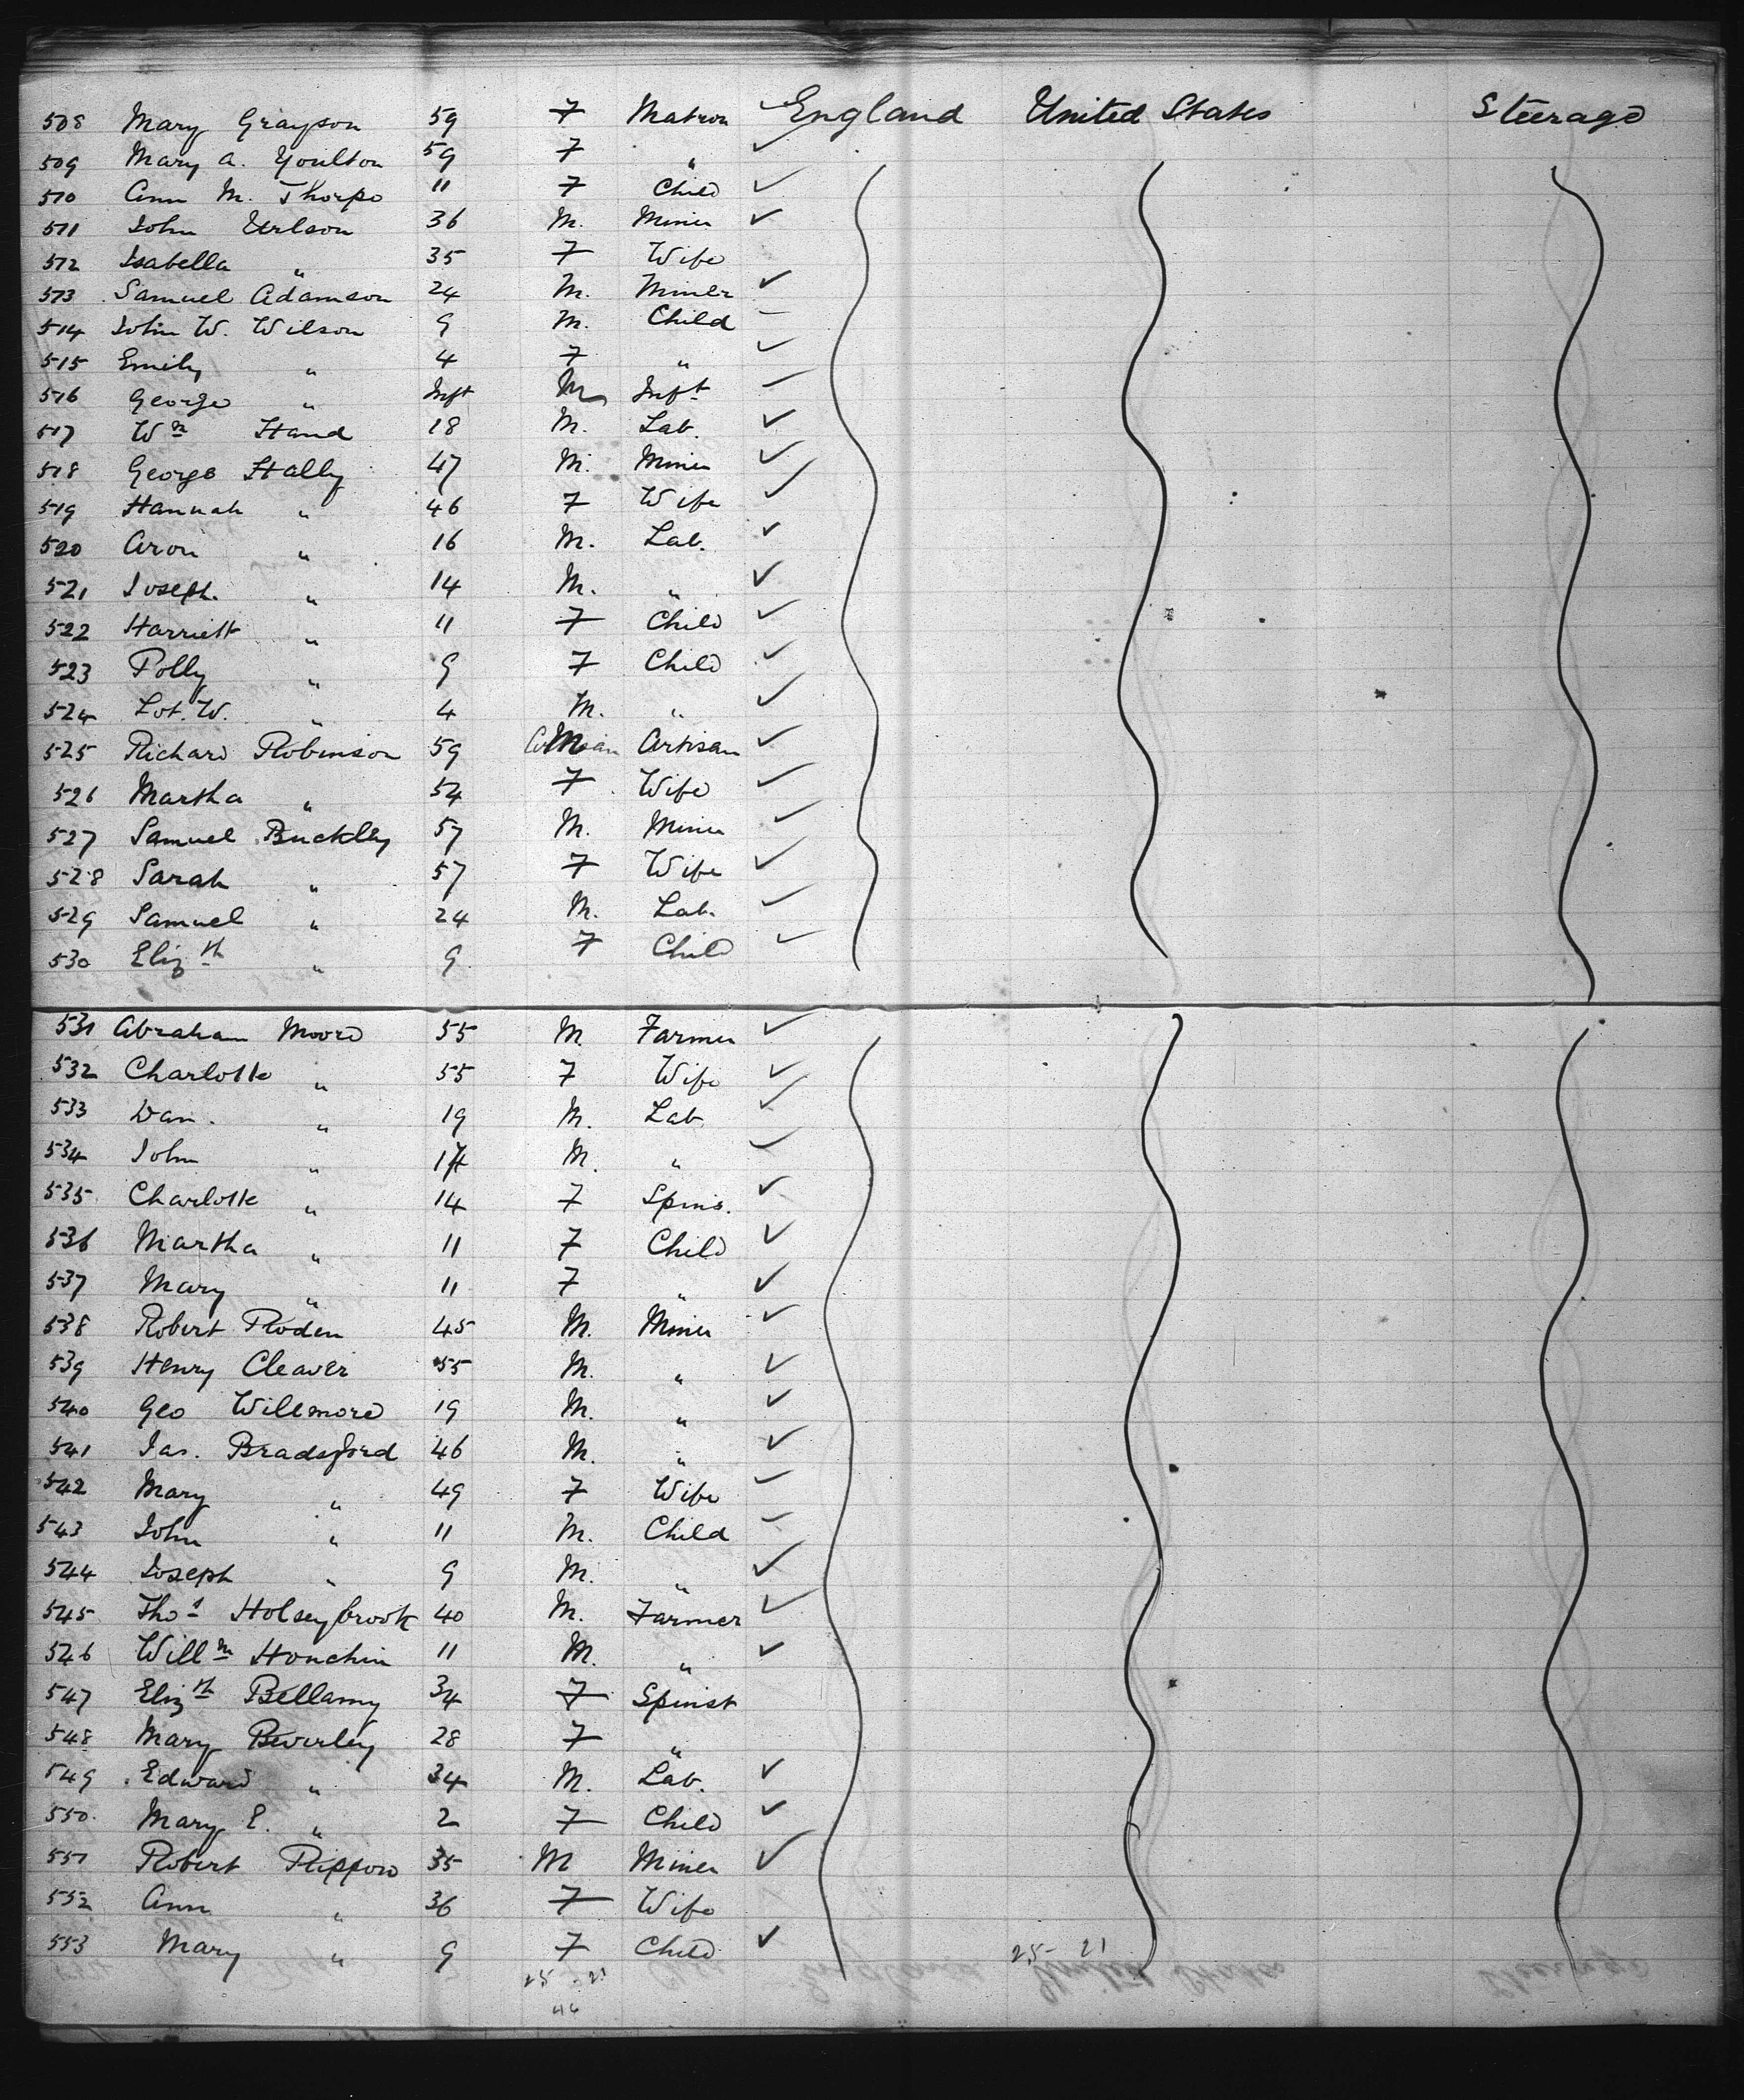 508 Mary Grayson 59 F Matron England United States Steerage
509 Mary A. Youlton 59 F "
510 Ann M. Thorpe 11 F Child
511 John Urlson 36 M. Miner
512 Isabella " 35 F Wife
513 Samuel Adamson 24 M. Miner
514 John W. Wilson 9 M. Child
515 Emily " 4 F "
516 George " Inft M Inft
517 Wm Hand 18 M. Lab.
518 George Hally 47 M. Miner
519 Hannah " 46 F Wife
520 Aron " 16 M. Lab.
521 Joseph. " 14 M. "
522 Harriett " 11 F Child
523 Polly " 9 F Child
524 Lot. W. " 4 M. "
525 Richard Robinson 59 M Artisan
526 Martha " 54 F Wife
527 Samuel Buckley 57 M. Miner
528 Sarah " 57 F Wife
529 Samuel " 24 M. Lab.
530 Elizth " 9 F Child
531 Abraham Moore 55 M. Farmer
532 Charlotte " 55 F Wife
533 Dan. " 19 M. Lab
534 John " 17 M. "
535 Charlotte " 14 F Spins.
536 Martha " 11 F Child
537 Mary " 11 F "
538 Robert Roden 45 M. Miner
539 Henry Cleaver 55 M. "
540 Geo Willmore 19 M. "
541 Jas. Bradsford 46 M. "
542 Mary " 49 F Wife
543 John " 11 M. Child
544 Joseph " 9 M. "
545 Thos Holseybrook 40 M. Farmer
546 Willm Honchin 11 M. "
547 Elizth Bellamy 34 F Spinst
548 Mary Beverley 28 F "
549 Edward " 34 M. Lab.
550. Mary E. " 2 F Child
551 Robert Rippon 35 M Miner
552 Ann " 36 F Wife
553 Mary " 9 F Child 25 - 21
25 - 21
46